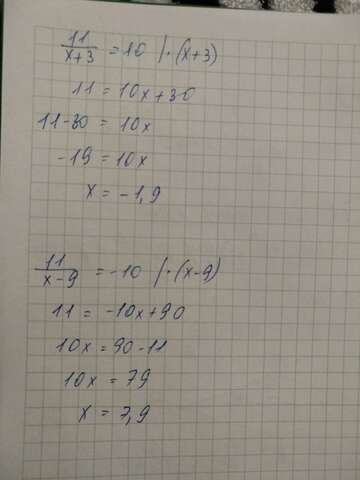 11/(x+3) = 10 /·(x+3)
11 = 10x+30
11-30 = 10x
-19 = 10x
x = -1,9
11/(x-9) = -10 /·(x-9)
11 = -10x+90
10x = 90-11
10x = 79
x = 7,9